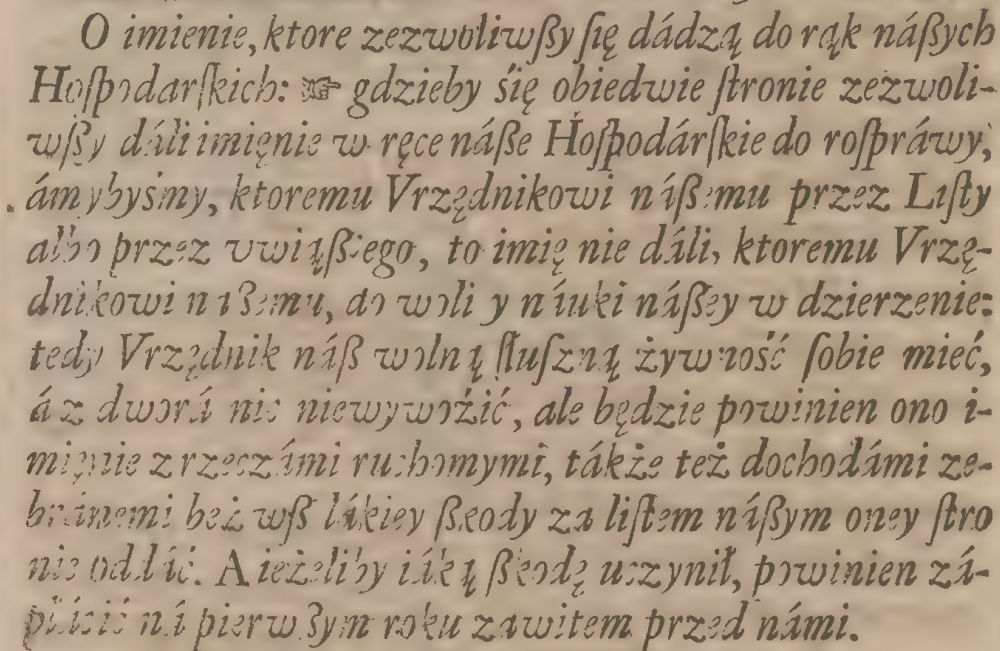 O imienie, ktore zezwoliwßy ſię dádzą do rąk náßych
Hoſpodarſkich: ☞ gdzieby śię obiedwie ſtronie zezwoli-
wßy dáli imięnie w ręce náße Hoſpodárſkie do roſpráwy,
ámybyśmy, ktoremu Vrzędnikowi náßemu przez Liſty
albo przez vwiąßczego, to imię nie dáli, ktoremu Vrzę-
dnikowi naßemu, do woli y náuki náßey w dzierzenie:
tedy Vrzędnik náß wolną ſłuſzną żywność ſobie mieć,
á z dworá nic niewywoźić, ale będzie powinien ono i-
mięnie z rzeczámi ruchomymi, tákże też dochodámi ze-
bránemi bez wßelákiey ßkody za liſtem náßym oney ſtro
nie oddáć. A ieżeliby iáką ßkodę uczynił, powinien zá-
płáćić ná pierwßym roku zawitem przed námi.